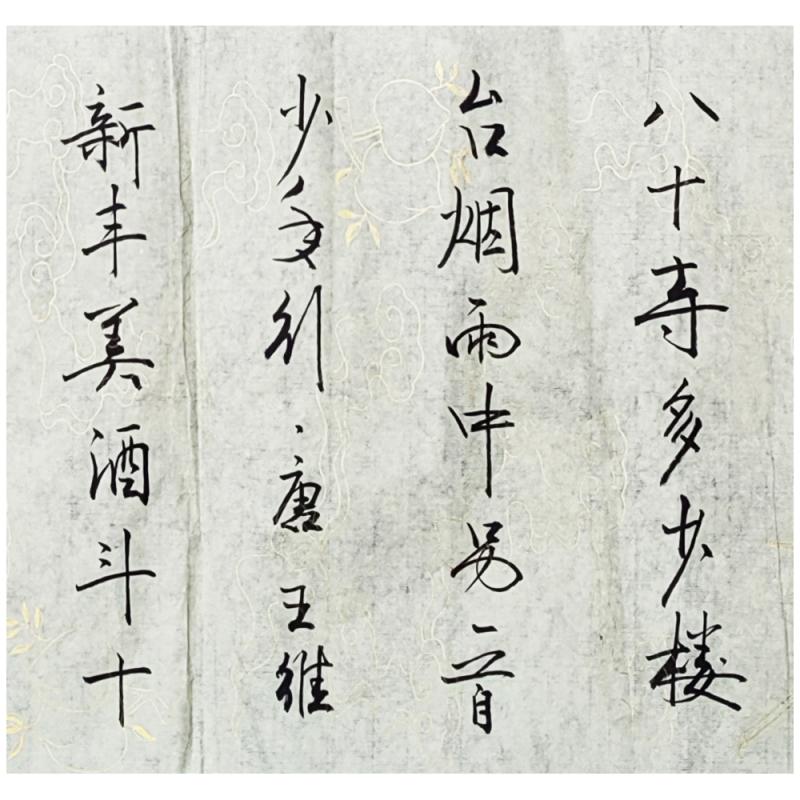 八十寺多少楼
台烟雨中另一首
少年行、唐王维
新丰美酒斗十